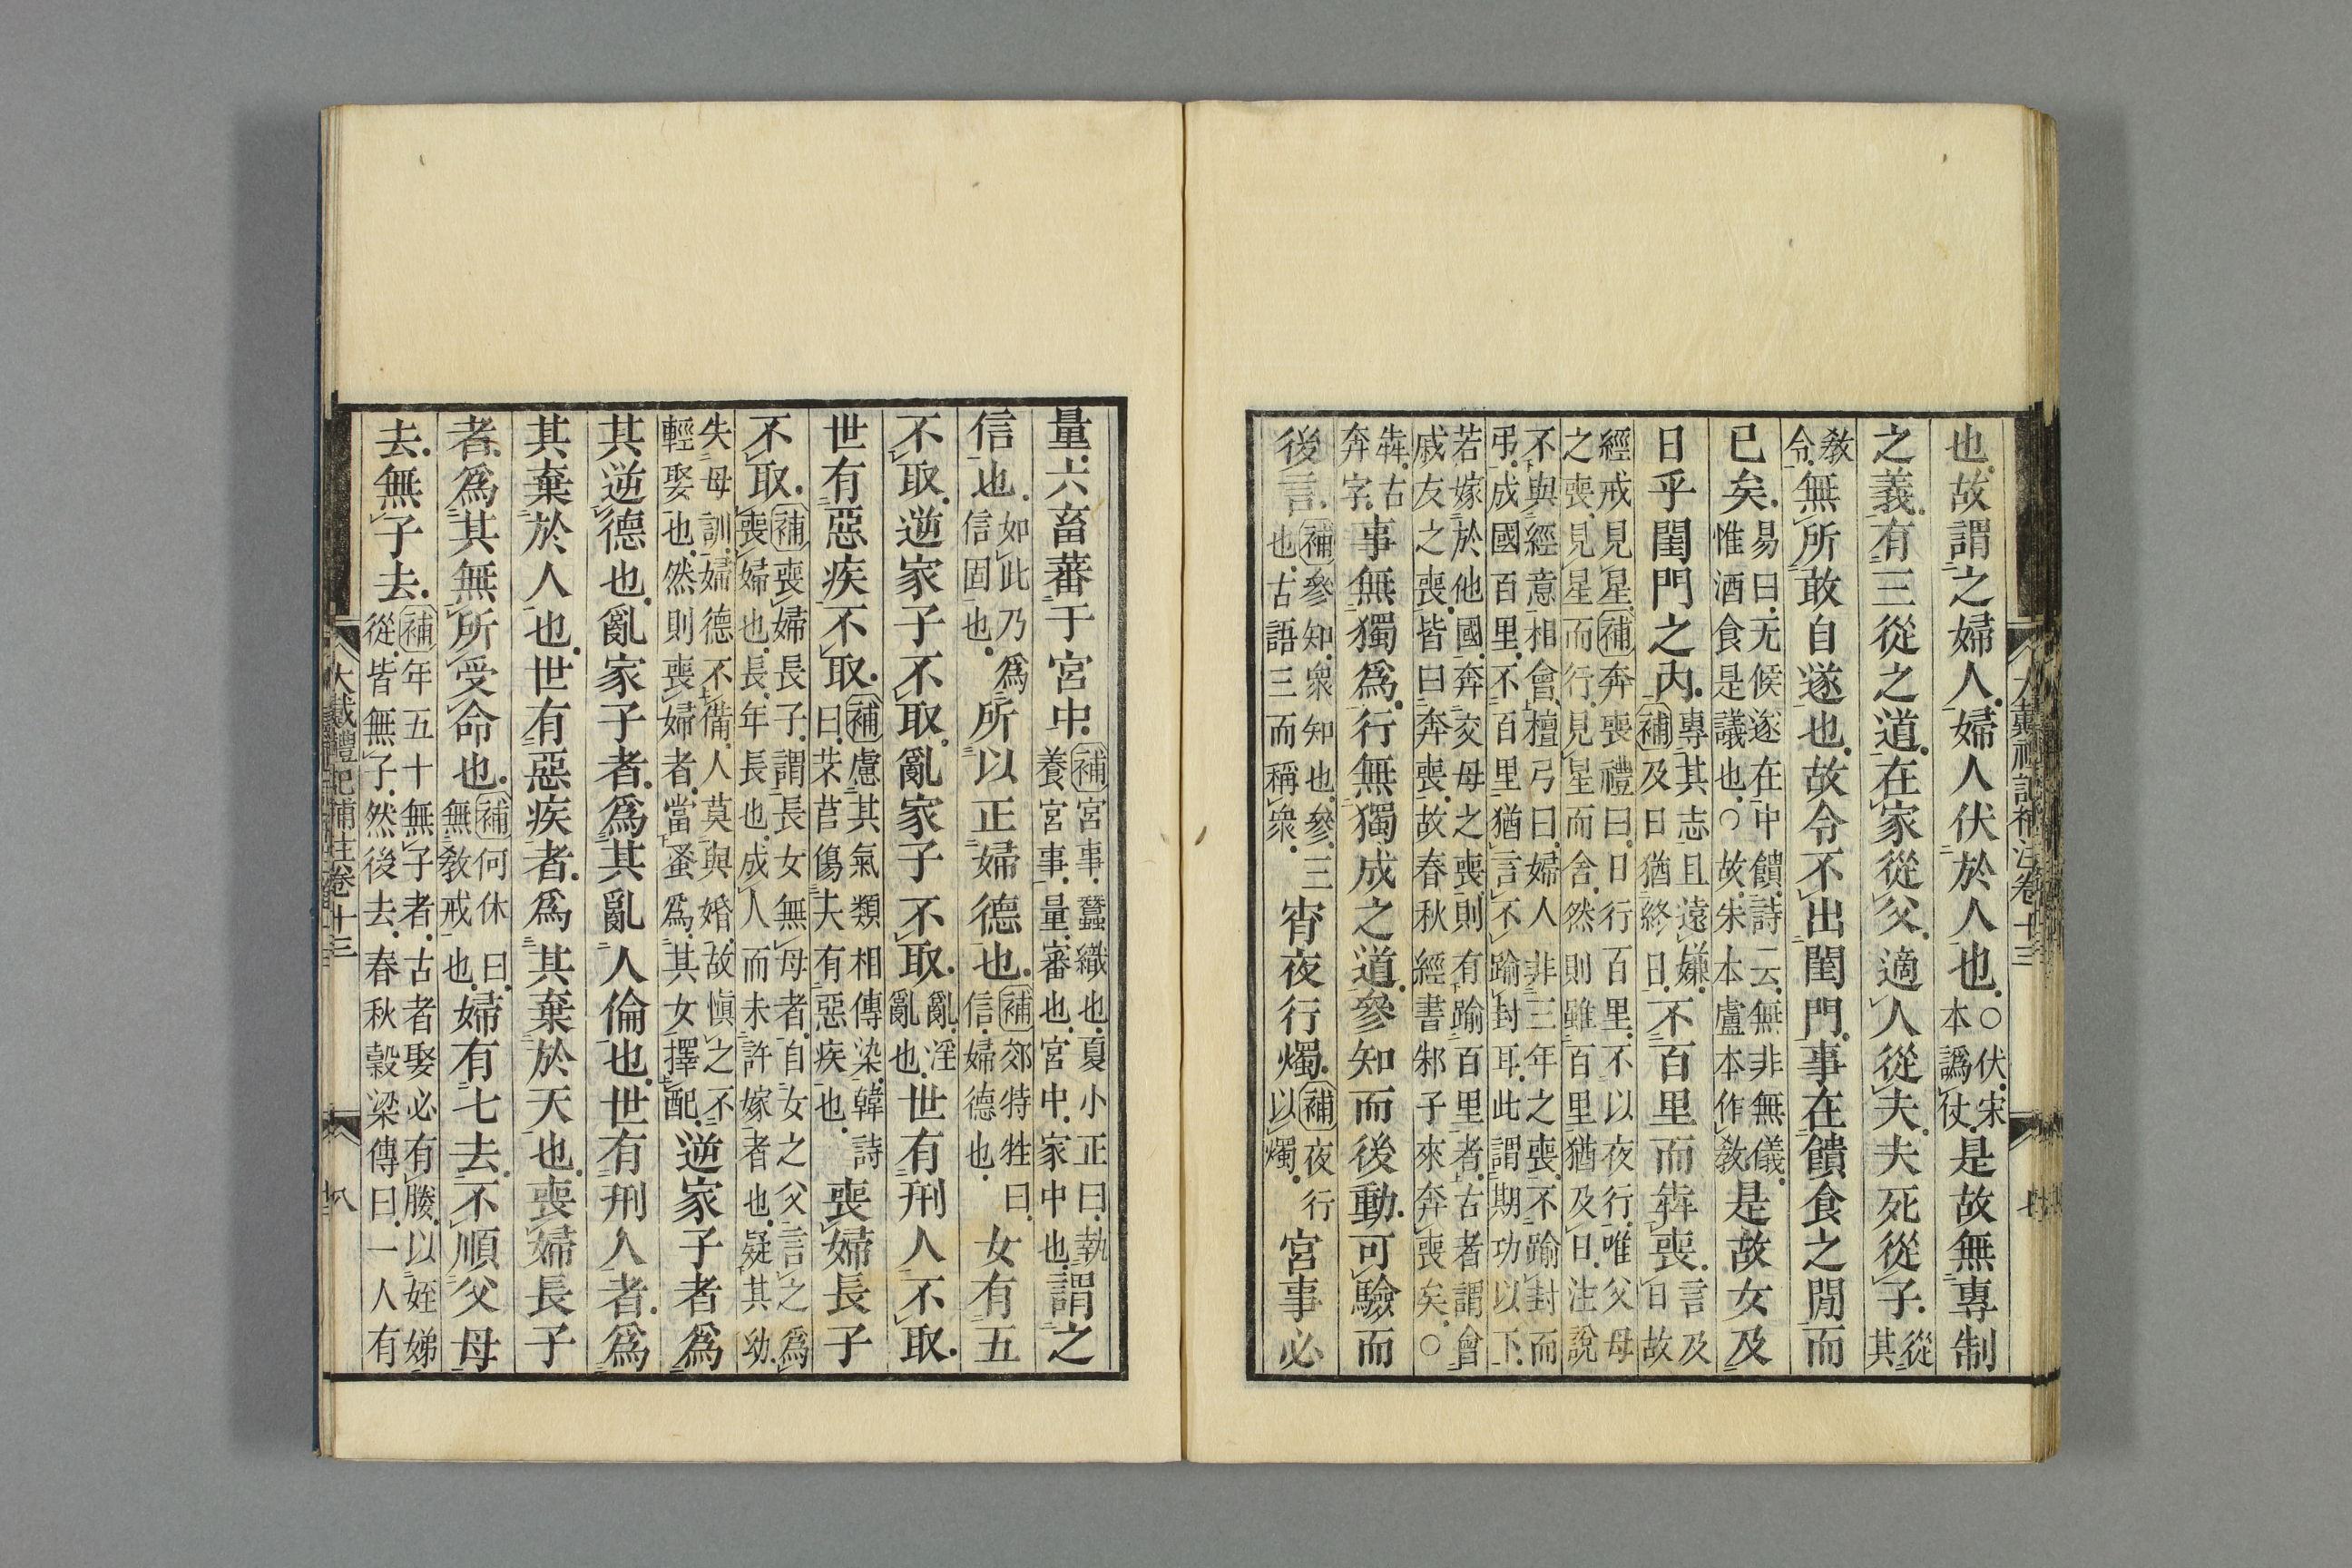 大戴禮記補注卷十三 七
也故謂之婦人婦人伏於人也○伏宋本譌仗是故無專制
之義有三從之道在家從父適人從夫夫死從子從其
敎令無所敢自遂也故令不出閨門事在饋食之閒而
已矣易曰无候遂在中饋詩云無非無儀惟酒食是議也○故朱本盧本作敎是故女及
日乎閨門之內專其志且遠嫌補及日猶終日不百里而犇喪言及日故
經戒見星補奔喪禮曰日行百里不以夜行唯父母
之喪見星而行見星而舍然則雖百里猶及日注說
不與經意相會檀弓曰婦人非三年之喪不踰封而
弔成國百里不百里猶言不踰封耳此謂期功以下
若嫁於他國奔父母之喪則有踰百里者古者謂會
戚友之喪皆曰奔喪故春秋經書邾子來奔喪矣○
犇古奔字事無獨爲行無獨成之道參知而後動可驗而
後言補參知衆知也參三也古語三而稱衆宵夜行燭補夜行以燭宮事必
量六畜蕃于宮中補宮事蠶織也夏小正曰執養宮事量審也宮中家中也謂之
信也如此乃信固也爲所以正婦德也補郊特牲曰信婦德也女有五
不取逆家子不取亂家子不取亂淫亂也世有刑人不取
世有惡疾不取補慮其氣類相傳染韓詩曰芣苢傷夫有惡疾也喪婦長子
不取補喪婦長子謂長女無母者自女之父言之爲喪婦也長年長也成人而未許嫁者也疑其幼
失母訓婦德不備人莫與婚故愼之不輕娶也然則喪婦者當蚤爲其女擇配逆家子者爲
其逆德也亂家子者爲其亂人倫也世有刑人者爲
其棄於人也世有惡疾者爲其棄於天也喪婦長子
者爲其無所受命也補何休曰無敎戒也婦有七去不順父母
去無子去補年五十無子者古者娶必有媵以姪娣從皆無子然後去春秋穀梁傳曰一人有
大戴禮記補注卷十三 八